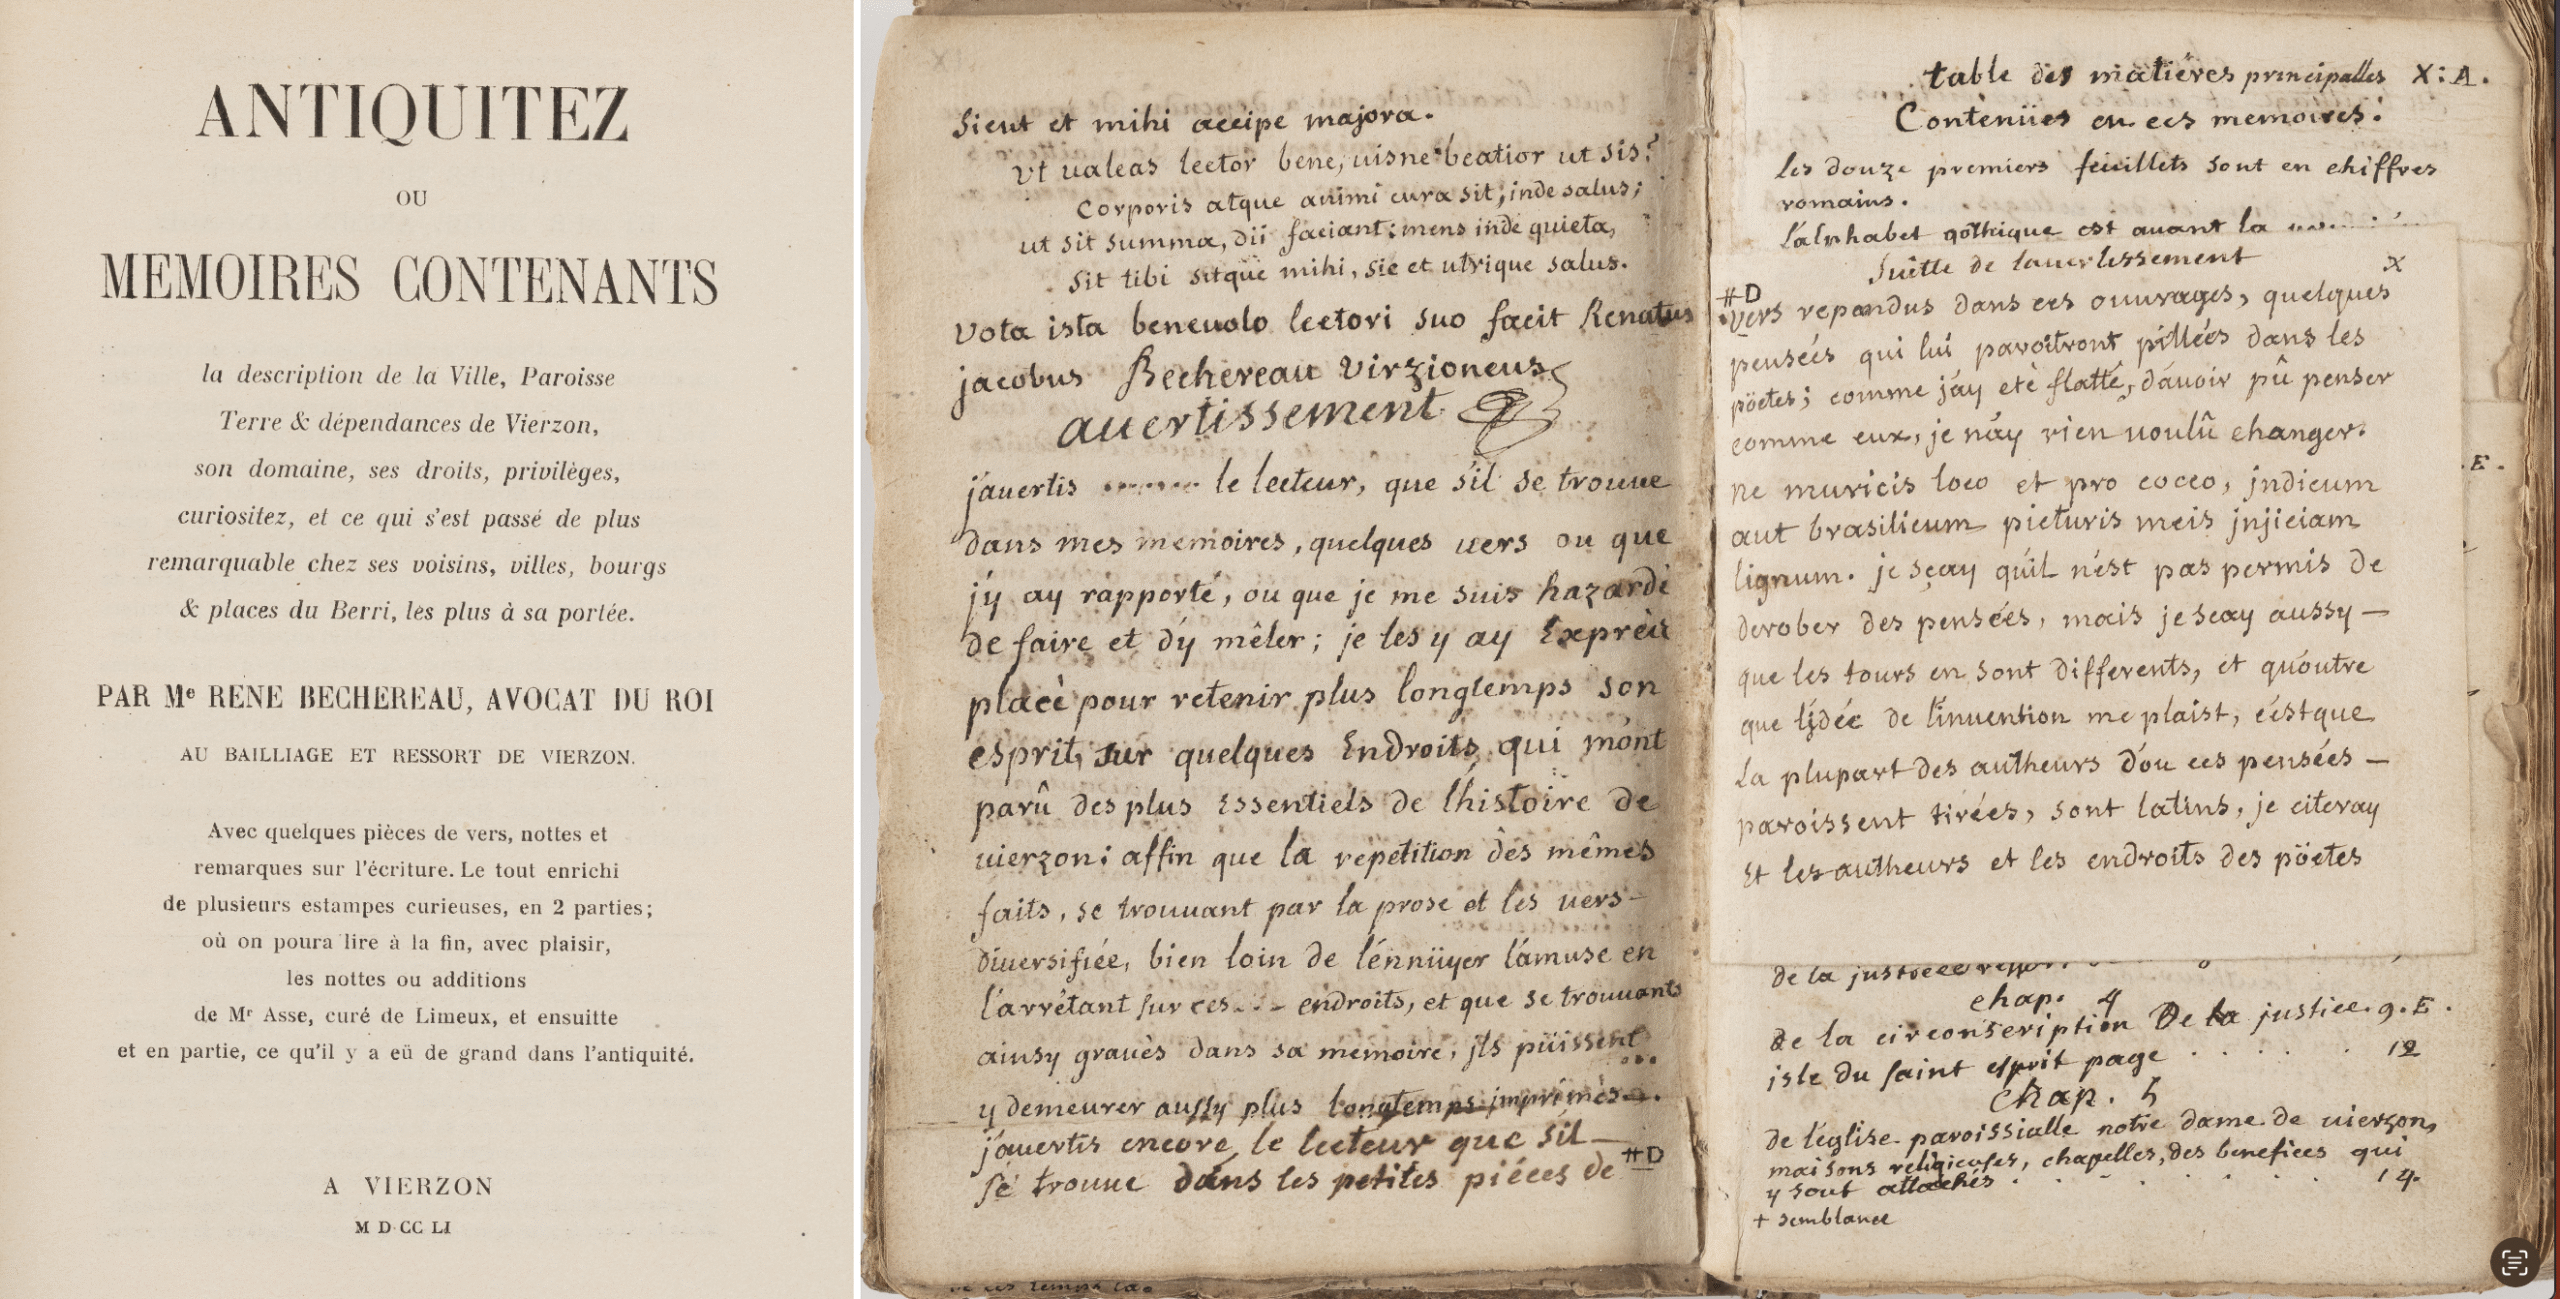 ANTIQUITEZ
OU
MEMOIRES CONTENANTS
la description de la Ville, Paroisse
Terre & dépendances de Vierzon,
son domaine, ses droits, privilèges,
curiositez, et ce qui s'est passé de plus
remarquable chez ses voisins, villes, bourgs
& places du Berri, les plus à sa portée.
PAR Me RENE BECHEREAU, AVOCAT DU ROI
AU BAILLIAGE ET RESSORT DE VIERZON.
Avec quelques pièces de vers, nottes et
remarques sur l'écriture. Le tout enrichi
de plusieurs estampes curieuses, en 2 parties;
où on poura lire à la fin, avec plaisir,
les nottes ou additions
de Mr Asse, curé de Limeux, et ensuitte
et en partie, ce qu'il y a eü de grand dans l'antiquité.
A VIERZON
M D CC LI
Sicut et mihi accipe majora.
vt ualeas lector bene, uisne beatior ut sis?
Corporis atque animi cura sit; inde salus;
ut sit summa, dii faciant; mens inde quieta,
sit tibi sitque mihi, sic et utrique salus.
vota ista beneuolo lectori suo facit Renatus
jacobus Bechereau virzioneus
auertissement
j'auertis le lecteur, que s'il se trouue
dans mes memoires, quelques uers ou que
j'y ay rapporté, ou que je me suis hazardé
de faire et d'y mêler; je les y ay Exprèz
placé pour retenir plus longtemps son
esprit, sur quelques Endroits qui m'ont
parû des plus Essentiels de l'histoire de
uierzon: affin que la repetition des mêmes
faits, se trouuant par la prose et les uers-
diuersifiée, bien loin de l'énnüyer l'amuse en
l'arrêtant sur ces... endroits, et que se trouuants
ainsy graués dans sa memoire, jls püissent
y demeurer aussy plus longtemps jmprimés...
j'auertis encore le lecteur que s'il-
se trouue dans les petites piéces de #D
table des matiéres principalles X: A.
Contenües en ces memoires:
les douze premiers feüillets sont en chiffres
romains.
l'alphabet gothique est auant la
Suitte de l'auertissement X
#D
vers repandus dans ces ouurages, quelques
pensées qui lui paroitront pillées dans les
pöetes; comme j'ay eté flatté, d'auoir pû penser
comme eux, je n'ay rien uoulû changer.
ne muricis loco et pro cocco, jndicum
aut brasilicum picturis meis jnjiciam
lignum. je sçay qu'il n'est pas permis de
derober des pensées, mais je scay aussy-
que les tours en sont differents, et qu'outre
que l'jdée de l'inuention me plaist, c'est que
la plupart des autheurs d'ou ces pensées-
paroissent tirées, sont latins, je citeray
Et les autheurs et les endroits des pöetes
.E.
de la justice
chap. 4
de la circonscription De la justice. 9. E.
isle du saint esprit page . . . . 12
chap. 5
de l'église paroissialle notre dame de uierzon,
maisons religieuses, chapelles, des benefices qui
y sont attachés . . . . . . 14.
+ semblance